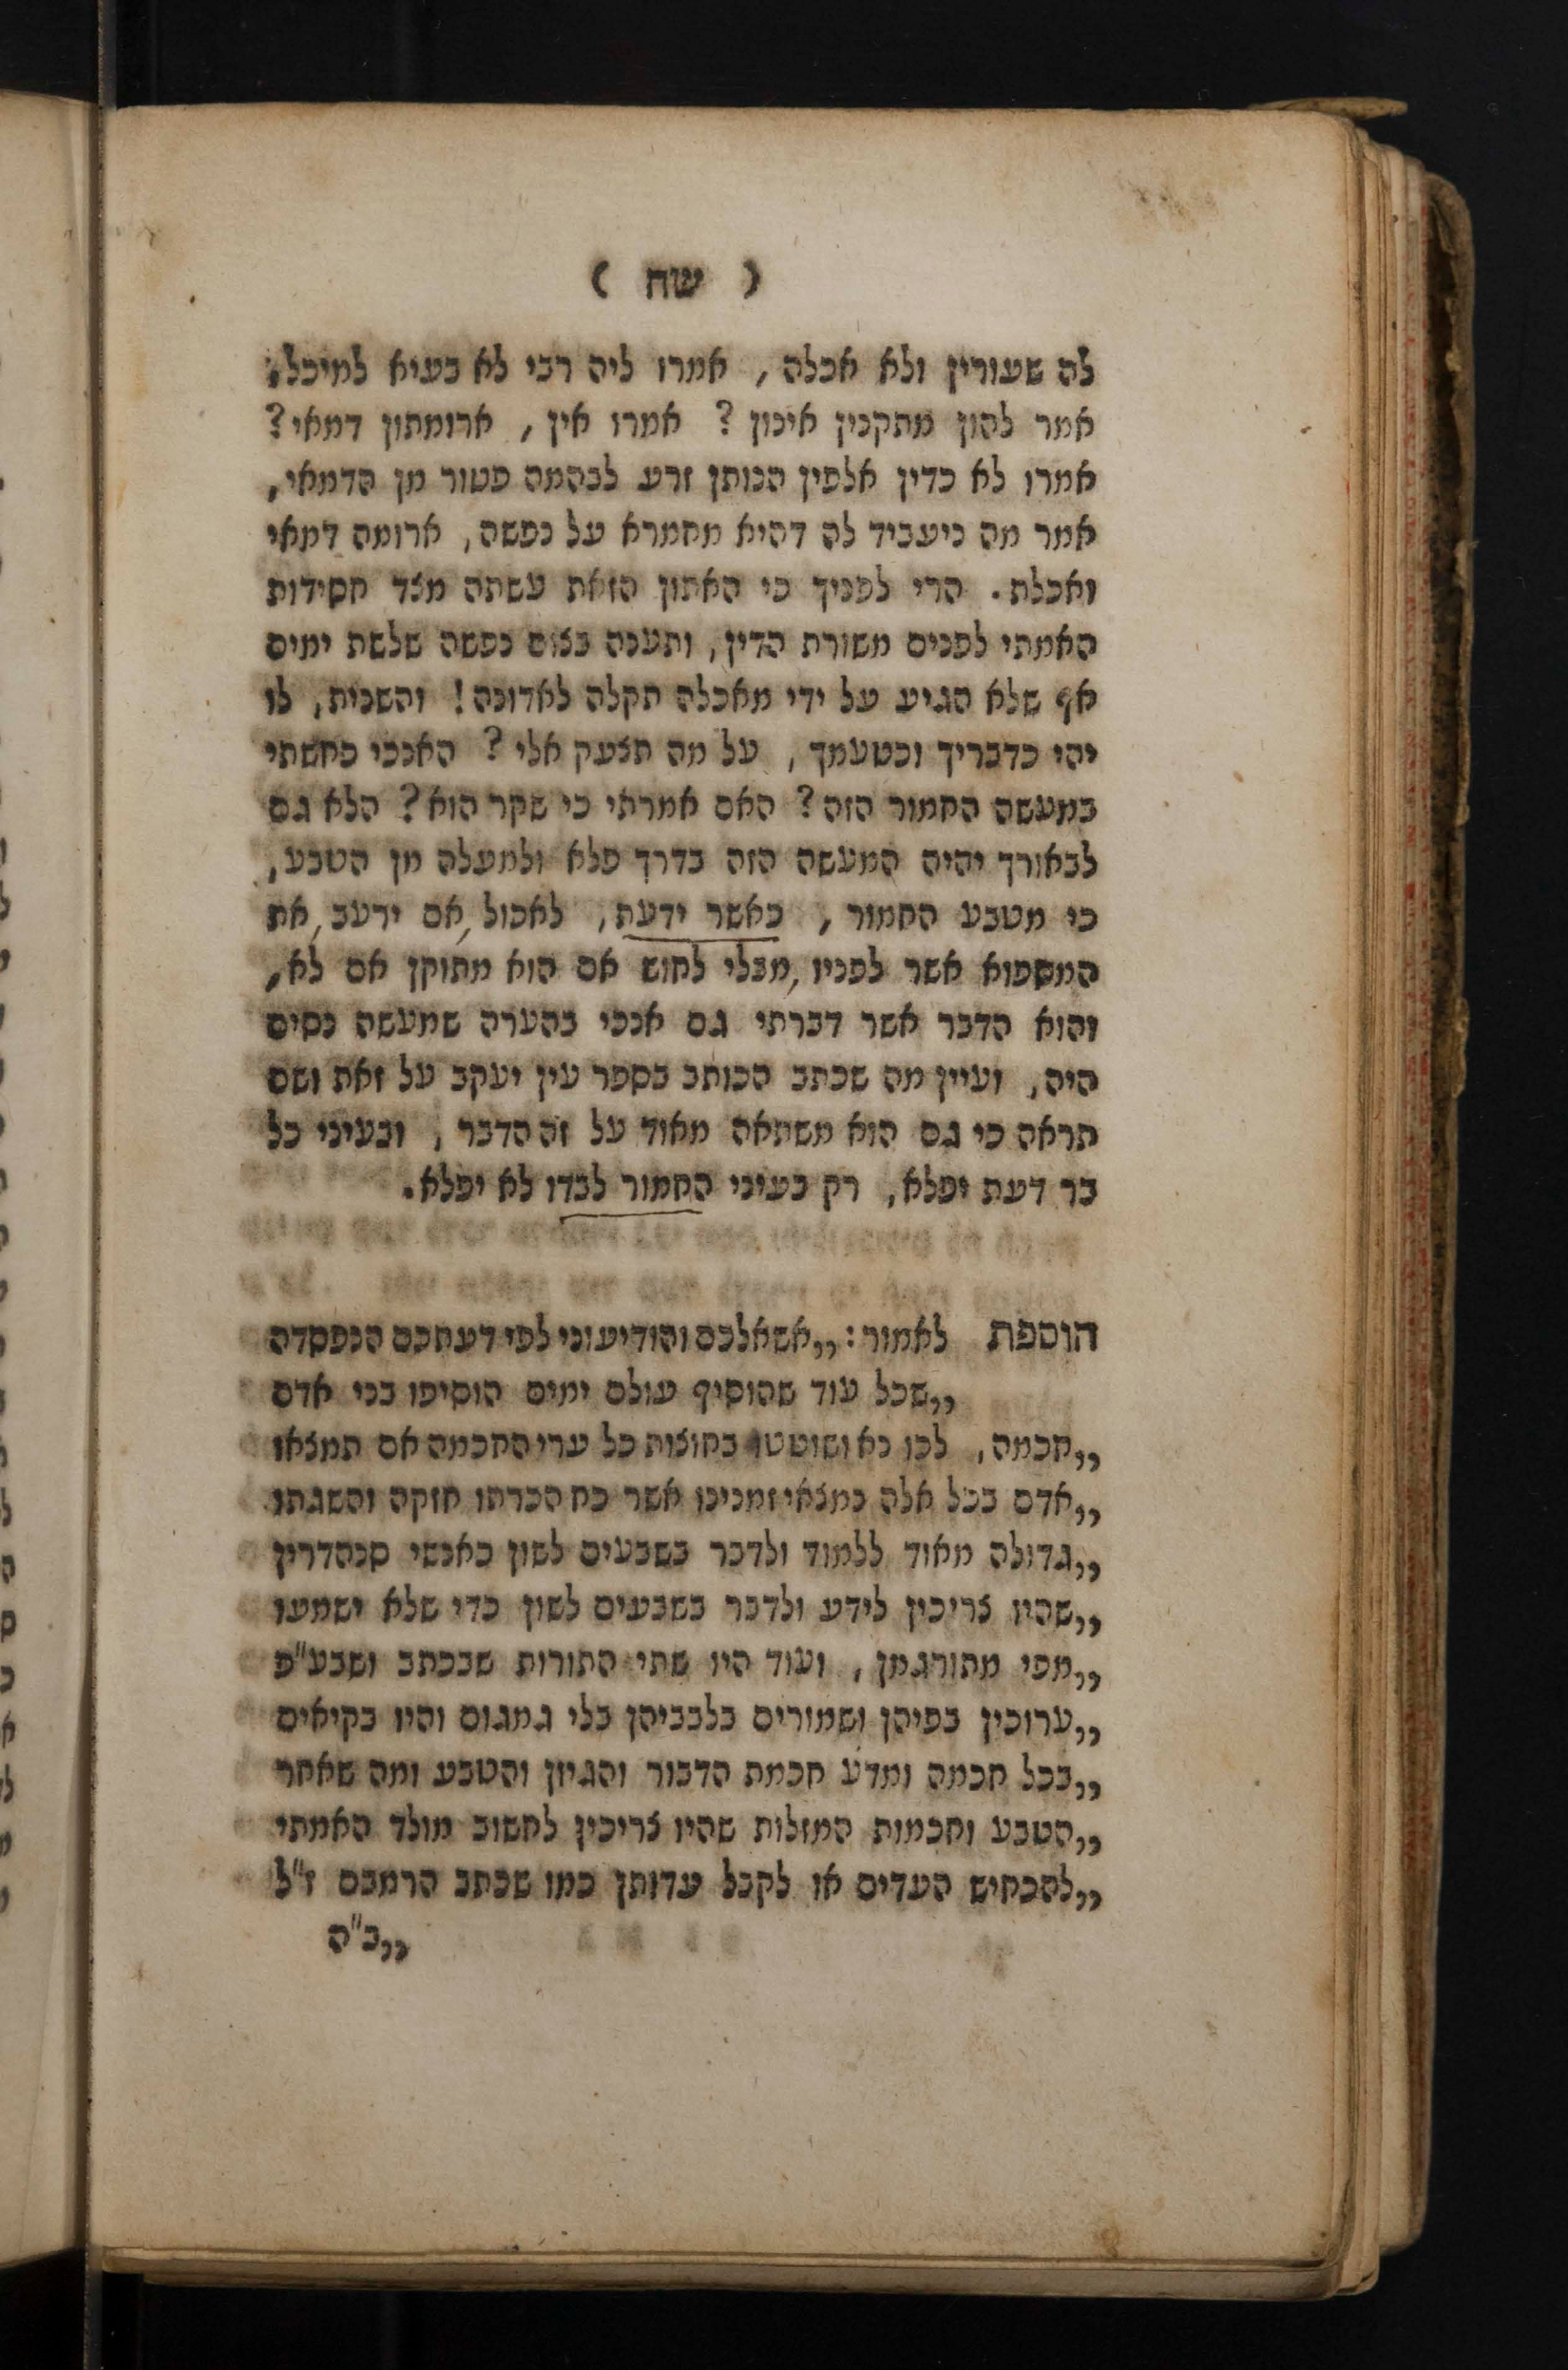 ( שח )
לה שעורין ולא אכלה, אמרו ליה רבי לא בעיא למיכל,
אמר להון מתקנין אינון? אמרו אין, ארומתון דמאי?
אמרו לא כדין אלפין הנותן זרע לבהמה פטור מן הדמאי,
אמר מה ניעביד לה דהיא מחמרא על נפשה, ארומה דמאי
ואכלת. הרי לפניך כי האתון הזאת עשתה מצד חסידות
האמתי לפנים משורת הדין, ותענה בצום נפשה שלשת ימים
אף שלא הגיע על ידי מאכלה תקלה לאדונה! והשנית, לו
יהי כדבריך וכטעמך, על מה תצעק אלי? האנכי כחשתי
במעשה החמור הזה? האם אמרתי כי שקר הוא? הלא גם
לבאורך יהיה המעשה הזה בדרך פלא ולמעלה מן הטבע,
כי מטבע החמור, כאשר ידעת, לאכול, אם ירעב, את
המספוא אשר לפניו, מבלי לחוש אם הוא מתוקן אם לא,
והוא הדבר אשר דברתי גם אנכי בהערה שמעשה נסים
היה, ועיין מה שכתב הכותב בספר עין יעקב על זאת ושם
תראה כי גם הוא משתאה מאוד על זה הדבר, ובעיני כל
בר דעת יפלא, רק בעיני החמור לבדו לא יפלא.
הוספת לאמור: „אשאלכם והודיעוני לפי דעתכם הנפסדה
„שכל עוד שהוסיף עולם ימים הוסיפו בני אדם
„חכמה, לכו נא ושוטטו בחוצות כל ערי החכמה אם תמצאו
„אדם בכל אלה כמצאי זמנינו אשר כח הכרתו חזקה והשגתו
„גדולה מאוד ללמוד ולדבר בשבעים לשון כאנשי סנהדרין
„שהיו צריכין לידע ולדבר בשבעים לשון כדי שלא ישמעו
„מפי מתורגמן, ועוד היו שתי התורות שבכתב ושבע"פ
„ערוכין בפיהן ושמורים בלבביהן בלי גמגום והיו בקיאים
„בכל חכמה ומדע חכמת הדבור והגיון והטבע ומה שאחר
„הטבע וחכמות המזלות שהיו צריכין לחשוב מולד האמתי
„להכחיש העדים או לקבל עדותן כמו שכתב הרמבם ז"ל
„בֿ"ה